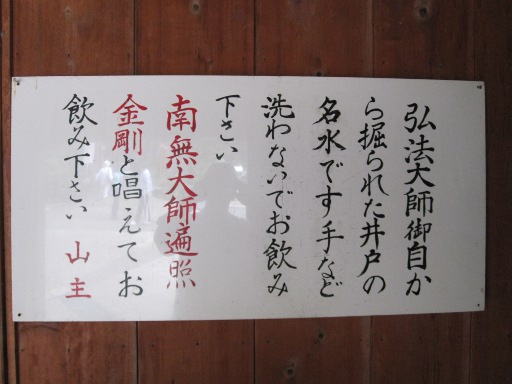 弘法大師御自か
ら掘られた井戸の
名水です手など
洗わないでお飲み
下さい
南無大師遍照
金剛と唱えてお
飲み下さい 山主